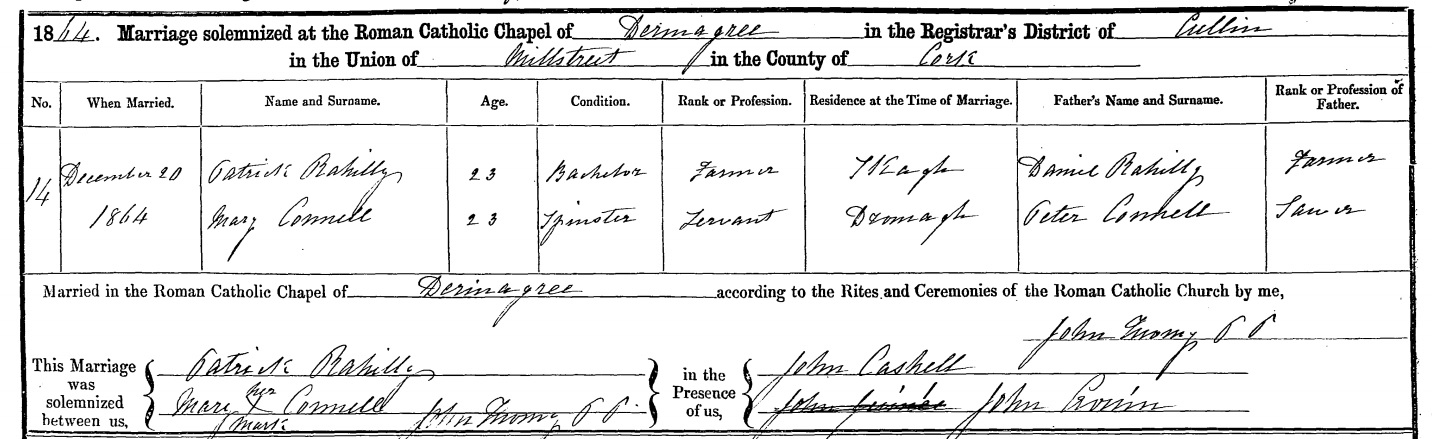 1864. Marriage solemnized at the Roman Catholic Chapel of Dermagree in the Registrar's District of Cullin
in the Union of Millstreet in the County of Cork
No. When Married. Name and Surname. Age. Condition. Rank or Profession. Residence at the Time of Marriage. Father's Name and Surname. Rank or Profession of Father.
14 December 20 Patrick Rahilly 23 Bachelor Farmer Daniel Rahilly Farmer
1864 Mary Connell 23 Spinster Servant Dromagh Peter Connell
Married in the Roman Catholic Chapel of Derinagree according to the Rites and Ceremonies of the Roman Catholic Church by me,
John Twomy P P
This Marriage was solemnized between us,
Patrick Rahilly
Mary her X mark Connell John Twomy P P.
in the Presence of us,
John Cashell
John Cronin